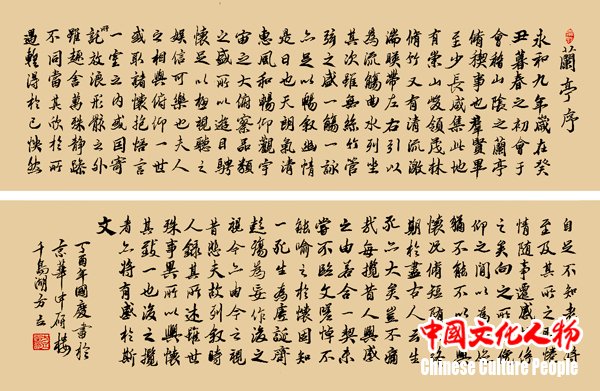 蘭亭序
永和九年歲在癸
丑暮春之初會于
會稽山陰之蘭亭
脩稧事也群賢畢
至少長咸集此地
有崇山峻領茂林
脩竹又有清流激
湍暎帶左右引以
為流觴曲水列坐
其次雖無絲竹管
弦之盛一觴一詠
亦足以暢叙幽情
是日也天朗氣清
惠風和暢仰觀宇
宙之大俯察品類
之盛所以遊目騁
懷足以極視聽之
娛信可樂也夫人
之相與俯仰一世
或取諸懷抱悟言
一室之內或因寄
所託放浪形骸之外
雖趣舍萬殊靜躁
不同當其欣於所
遇輙得於己怏然
自足不知老之將
至及其所之既惓
情隨事遷感慨係
之矣向之所欣俛
仰之間以為陳迹
猶不能不以之興
懷況脩短隨化終
期於盡古人云生
死亦大矣豈不痛
哉每攬昔人興感
之由若合一契未
嘗不臨文嗟悼不
能喻之於懷固知
一死生為虛誕齊
彭殤為妄作後之
視今亦由今之視
昔悲夫故列叙時
人錄其所述雖世
殊事異所以興懷
其致一也後之攬
者亦將有感於斯
文
丁酉年國慶書於
京華中研樓
千島湖方云
中國文化人物
Chinese Culture People